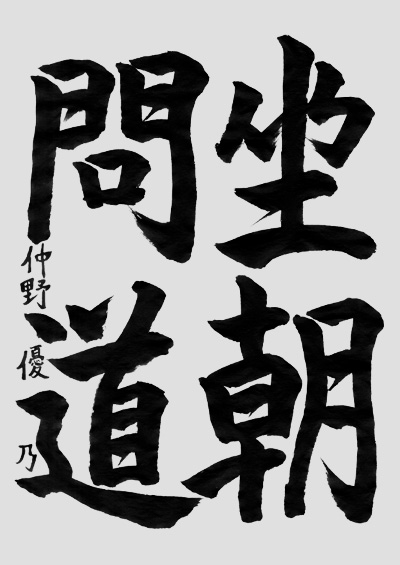 坐朝
問道
仲野優乃